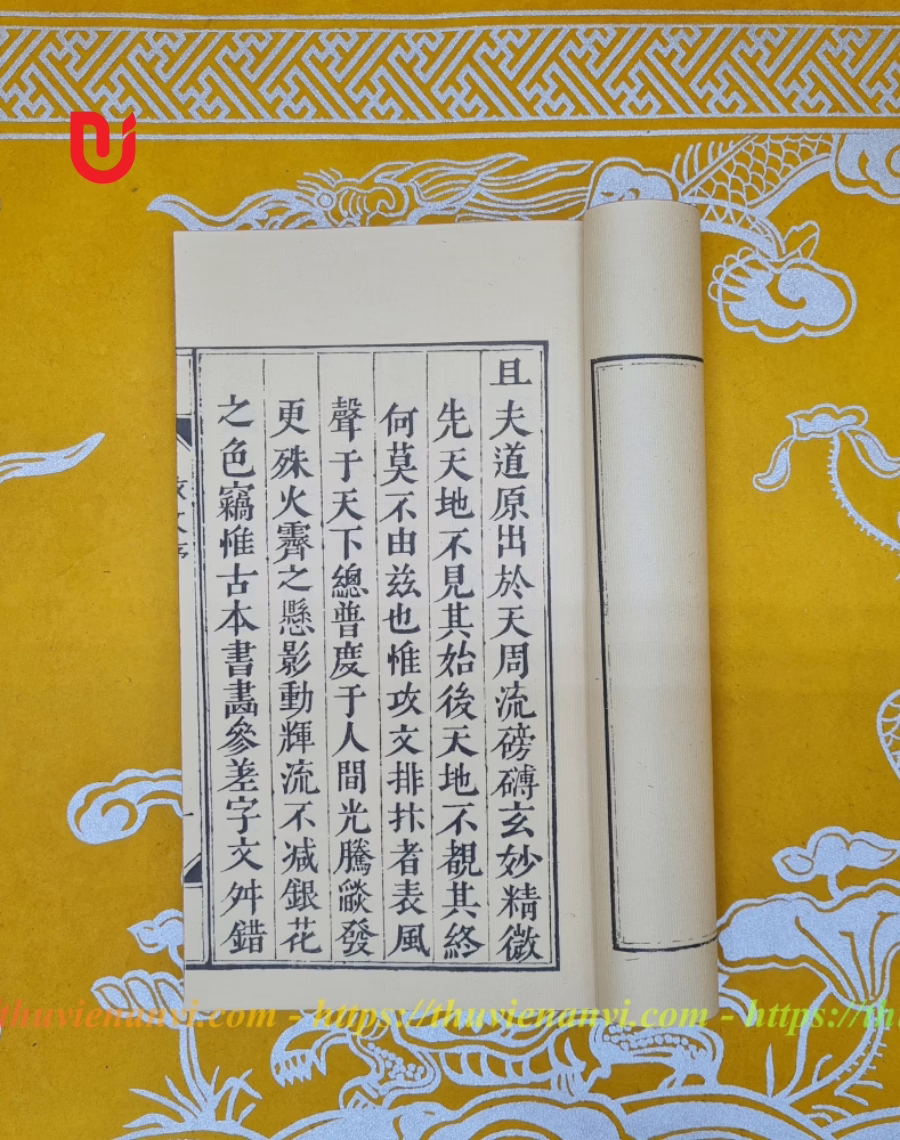 且夫道原出於天周流磅礴玄妙精微
先天地不見其始後天地不覩其終
何莫不由茲也惟攻文排抃者表風
聲于天下總普度于人間光騰燄發
更殊火霽之懸影動輝流不減銀花
之色竊惟古本書畵參差字文舛錯
thuvienanvi.com - https://thuvienanvi.com - https://th